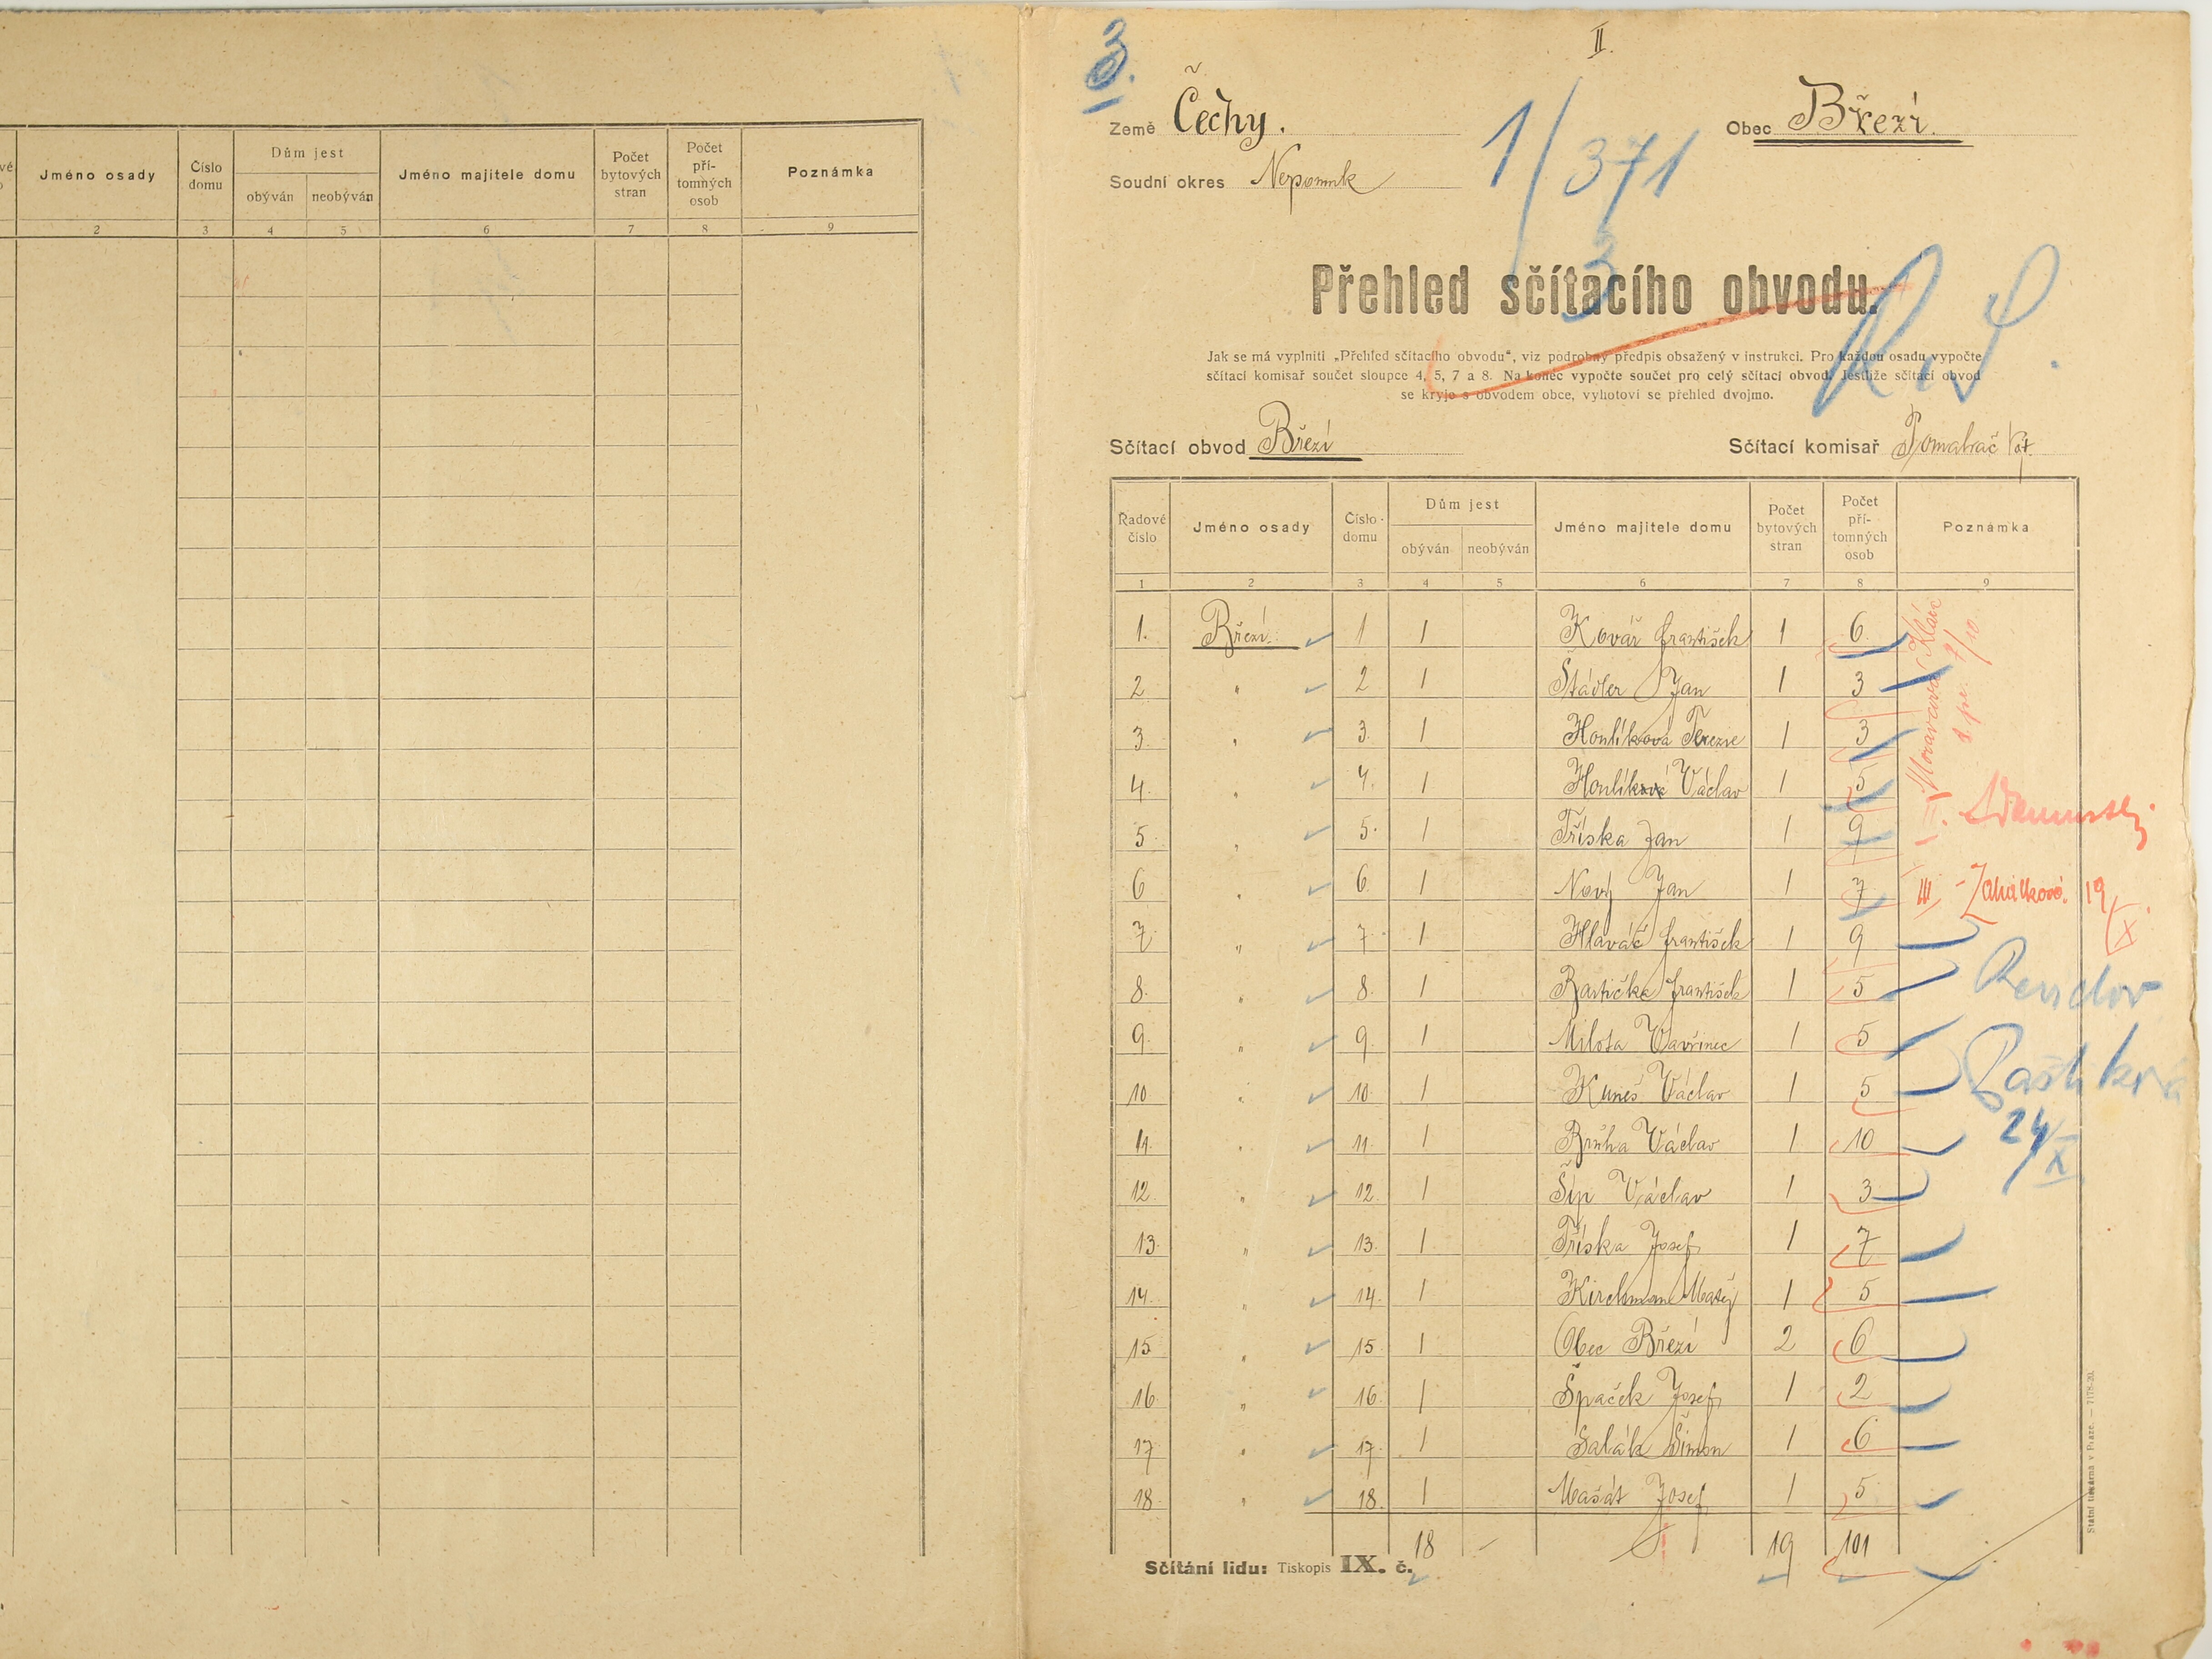 vé
Jméno osady
Číslo domu
Dům jest
obýván
neobýván
Jméno majitele domu
Počet bytových stran
Počet pří-tomných osob
Poznámka
2 3 4 5 6 7 8 9
3.
II.
Země Čechy.
Obec Březí.
Soudní okres Nepomuk
1/371
3
Přehled sčítacího obvodu.
Jak se má vyplniti „Přehled sčítacího obvodu“, viz podrobný předpis obsažený v instrukci. Pro každou osadu vypočte
sčítací komisař součet sloupce 4, 5, 7 a 8. Na konec vypočte součet pro celý sčítací obvod. Jestliže sčítací obvod
se kryje s obvodem obce, vyhotoví se přehled dvojmo.
Sčítací obvod Březí
Sčítací komisař
Řadové číslo
Jméno osady
Číslo domu
Dům jest
obýván
neobýván
Jméno majitele domu
Počet bytových stran
Počet pří-tomných osob
Poznámka
1 2 3 4 5 6 7 8 9
1. Březí. 1 1 Kovář František 1 6
2 " 2 1 Štádler Jan 1 3
3. " 3. 1 Houlíková Terezie 1 3
4. " 4. 1 Václav 1 5
5 " 5. 1 Tříska Jan 1 9
6 " 6. 1 Nový Jan 1 7 III
19/X.
7 " 7. 1 Hlaváč František 1 9
8. " 8. 1 František 1 5
9. " 9. 1 Milota Vavřinec 1 5
10 " 10. 1 Kuneš Václav 1 5
11. " 11. 1 Brůha Václav 1 10
24/X
12. " 12. 1 Šíp Václav 1 3
13. " 13. 1 Tříska Josef 1 7
14. " 14. 1 Matěj 1 5
15 " 15 1 Obec Březí 2 6
16 " 16. 1 Špaček Josef 1 2
17. " 17. 1 Salák Šimon 1 6
18. " 18. 1 Mašát Josef 1 5
18 – 19 101
Sčítání lidu: Tiskopis IX. č.
Státní tiskárna v Praze. — 7178-20.